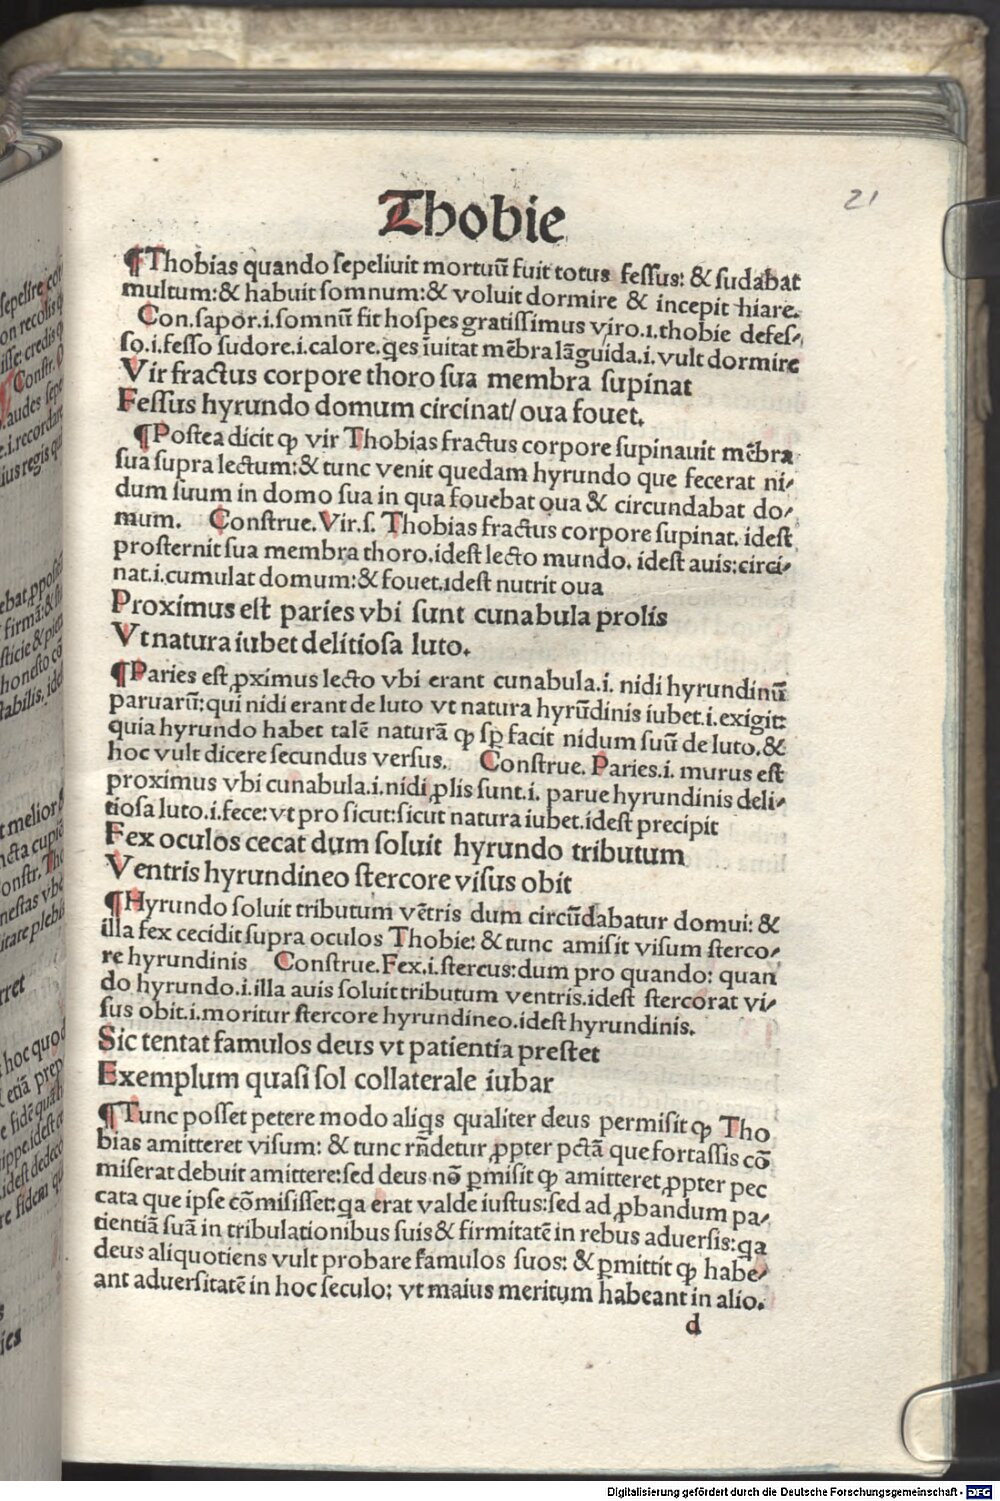 21
Thobie
¶Thobias quando ſepeliuit mortuū fuit totus feſſus: & ſudabat
multum:& habuit ſomnum:& voluit dormire & incepit hiare.
Con.ſapor.i.ſomnū fit hoſpes gratiſſimus viro.i.thobie defeſ-
ſo.i.feſſo ſudore.i.calore.q̄es īuitat mēbra lāguida.i.vult dormire
Vir fractus corpore thoro ſua membra ſupinat
Feſſus hyrundo domum circinat/ oua fouet.
¶Poſtea dicit ꝙ vir Thobias fractus corpore ſupinauit mēbra
ſua ſupra lectum:& tunc venit quedam hyrundo que fecerat ni-
dum ſuum in domo ſua in qua fouebat oua & circundabat do-
mum. Conſtrue.Vir.ſ. Thobias fractus corpore ſupinat. ideſt
proſternit ſua membra thoro.ideſt lecto mundo. ideſt auis:circi-
nat.i.cumulat domum:& fouet.ideſt nutrit oua
Proximus eſt paries vbi ſunt cunabula prolis
Vt natura iubet delitioſa luto.
¶Paries eſt ꝓximus lecto vbi erant cunabula.i. nidi hyrundinū
paruarū:qui nidi erant de luto vt natura hyrūdinis iubet.i.exigit:
quia hyrundo habet talē naturā ꝙ ſꝑ facit nidum ſuū de luto.&
hoc vult dicere ſecundus verſus. Conſtrue. Paries.i. murus eſt
proximus vbi cunabula.i.nidi ꝓlis ſunt.i. parue hyrundinis deli-
tioſa luto.i.fece:vt pro ſicut:ſicut natura iubet.ideſt precipit
Fex oculos cecat dum ſoluit hyrundo tributum
Ventris hyrundineo ſtercore viſus obit
¶Hyrundo ſoluit tributum vētris dum circūdabatur domui: &
illa fex cecidit ſupra oculos Thobie: & tunc amiſit viſum ſterco-
re hyrundinis Conſtrue.Fex.i.ſtercus:dum pro quando: quan
do hyrundo.i.illa auis ſoluit tributum ventris.ideſt ſtercorat vi-
ſus obit.i.moritur ſtercore hyrundineo.ideſt hyrundinis.
Sic tentat famulos deus vt patientia preſtet
Exemplum quaſi ſol collaterale iubar
¶Tunc poſſet petere modo aliq̄s qualiter deus permiſit ꝙ Tho
bias amitteret viſum: & tunc rn̄detur ꝓpter pctā que fortaſſis cō
miſerat debuit amittere:ſed deus nō ꝑmiſit ꝙ amitteret ꝓpter pec
cata que ipſe cōmiſiſſet:qa erat valde iuſtus:ſed ad ꝓbandum pa-
tientiā ſuā in tribulationibus ſuis & firmitatē in rebus aduerſis:qa
deus aliquotiens vult probare famulos ſuos: & ꝑmittit ꝙ habe-
ant aduerſitatē in hoc ſeculo: vt maius meritum habeant in alio.
d
Digitalisierung gefördert durch die Deutsche Forschungsgemeinschaft - DFG